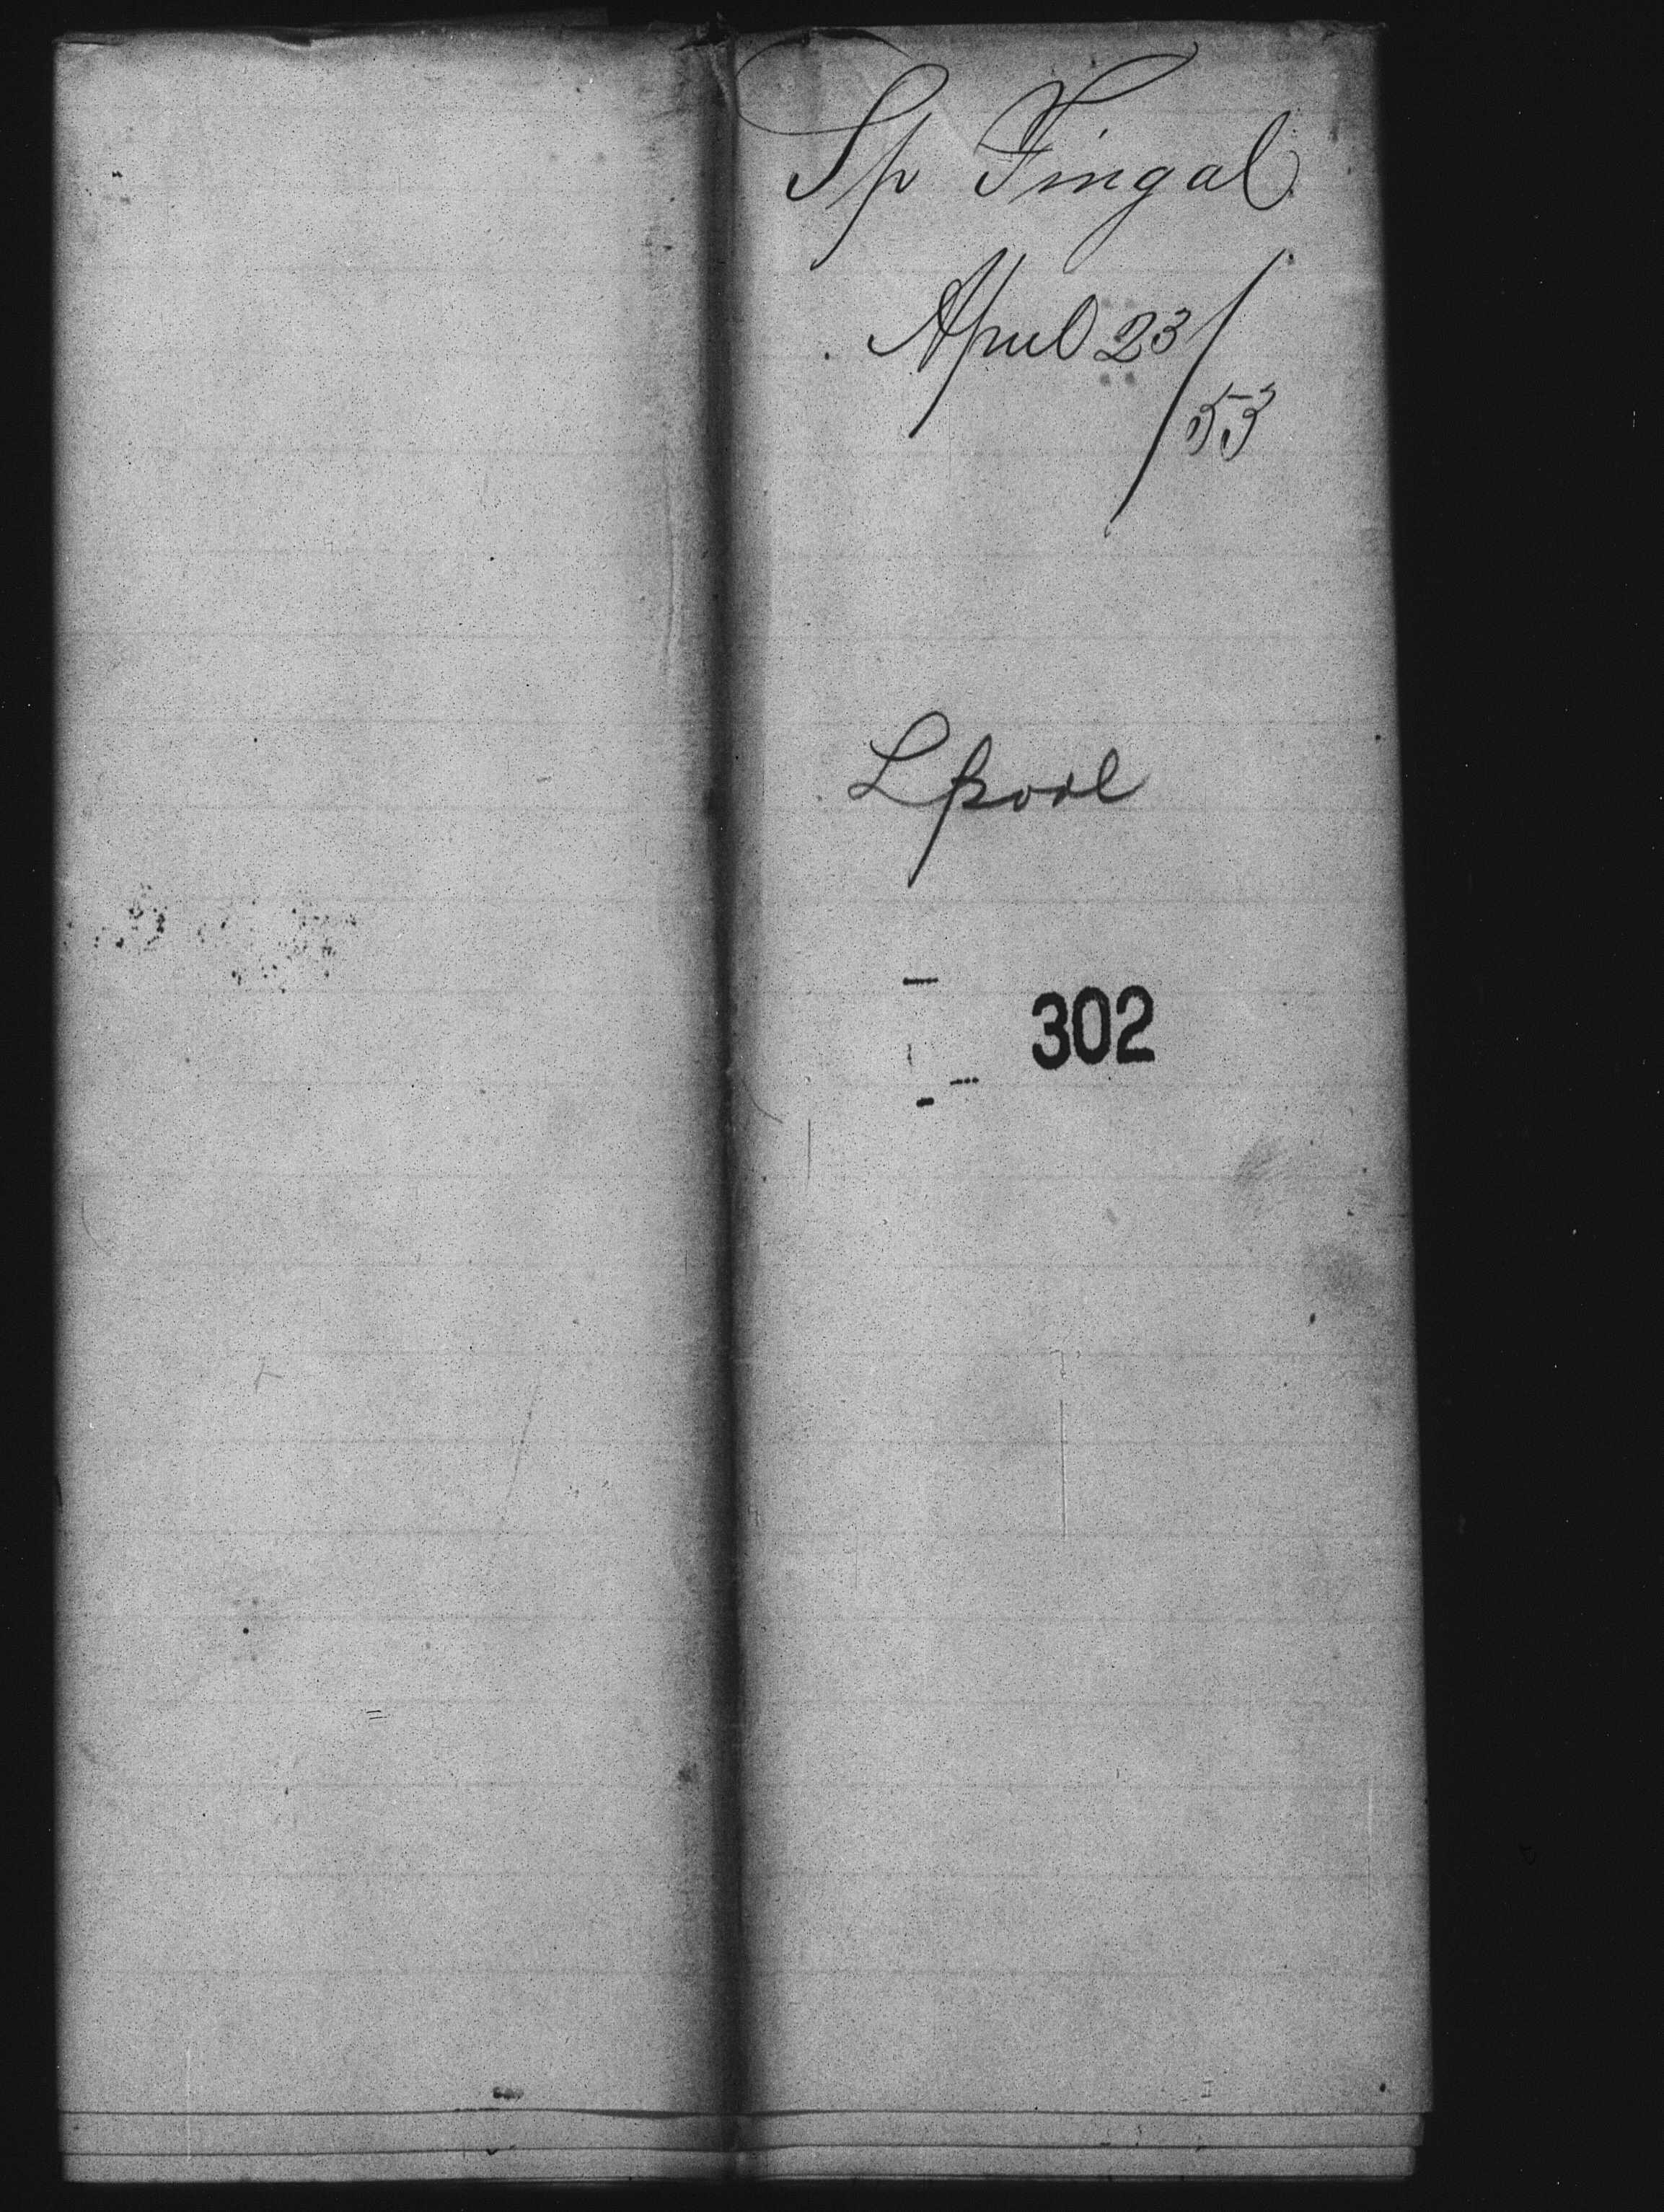 Sp Fingal
April 23/
53
Lpool
302